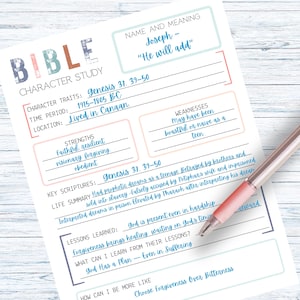 BIBLE
CHARACTER STUDY
NAME AND MEANING
Joseph ~
"He will add"
CHARACTER TRAITS: Genesis 37, 39-50
TIME PERIOD: 1915-1805 BC
LOCATION: Lived in Canaan
STRENGTHS
Faithful, resilient
visionary, forgiving
obedient
WEAKNESSES
May have been
boastful or naive as a
teen
KEY SCRIPTURES: Genesis 37, 39-50
LIFE SUMMARY: Had prophetic dreams as a teenage. Betrayed by brothers and
sold into slavery. Falsely accused by Potiphar's wife and imprisoned
Interpreted dreams in prison. Elevated by Pharaoh after interpreting his dreams
LESSONS LEARNED: God is present even in hardship
Forgiveness brings healing, waiting in God's
WHAT CAN I LEARN FROM THEIR LESSONS?
God Has a Plan — Even in Suffering
HOW CAN I BE MORE LIKE
Choose Forgiveness Over Bitterness